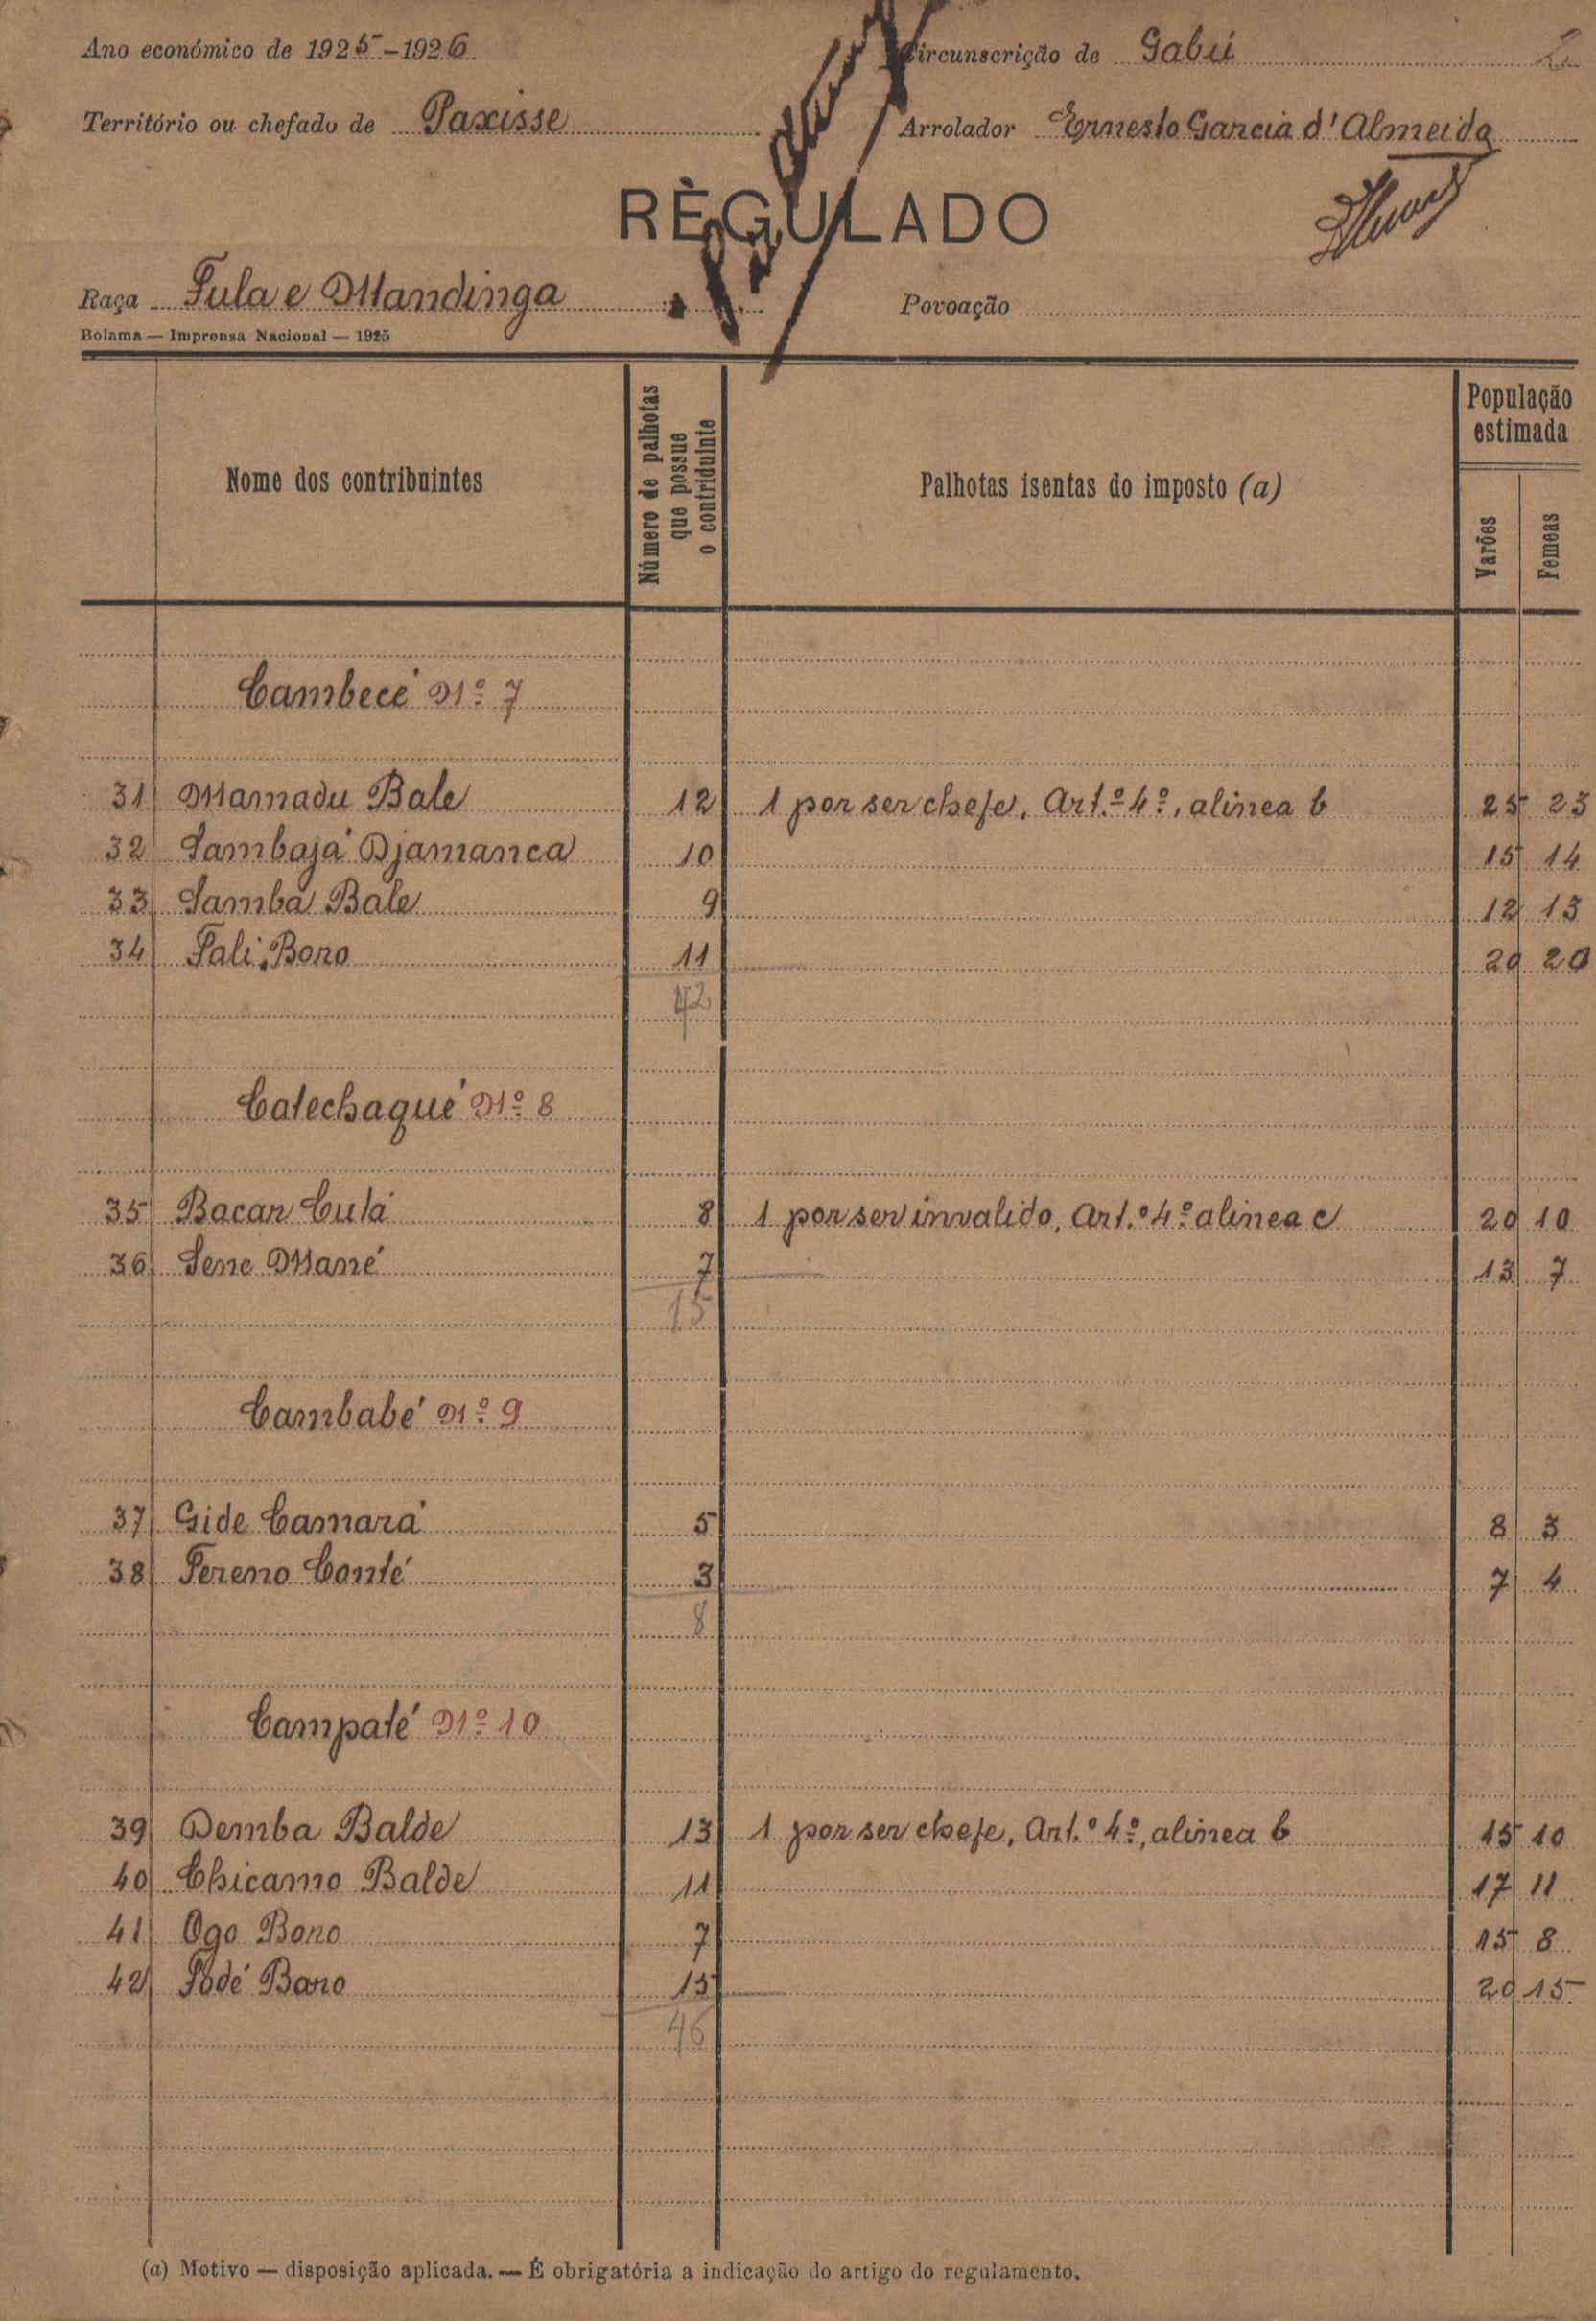 Ano económico de 1925-1926
Circunscrição de Gabú
2
Território ou chefado de Paxisse
Arrolador Ernesto Garcia d'Almeida
RÈGULADO
Raça Fula e Mandinga
Povoação
Bolama — Imprensa Nacional — 1925
Nome dos contribuintes
Número de palhotas que possue o contriduinte
Palhotas isentas do imposto (a)
População estimada
Varões
Femeas
Cambecé Nº 7
31 Mamadu Bale 12 1 por ser chefe, Art.º 4º, alinea b 25 23
32 Sambajá Djamanca 10 15 14
33 Samba Bale 9 12 13
34 Fali Bono 11 20 20
42
Catechaqué Nº 8
35 Bacar Culá 8 1 por ser invalido, Art.º 4º alinea c 20 10
36 Sene Mané 7 13 7
15
Cambabé Nº 9
37 Gide Camará 5 8 3
38 Fereno Conté 3 7 4
8
Campaté Nº 10
39 Demba Balde 13 1 por ser chefe, Art.º 4º, alinea b 15 10
40 Chicamo Balde 11 17 11
41 Ogo Bono 7 15 8
42 Fodé Bano 15 20 15
46
(a) Motivo — disposição aplicada. — É obrigatória a indicação do artigo do regulamento.